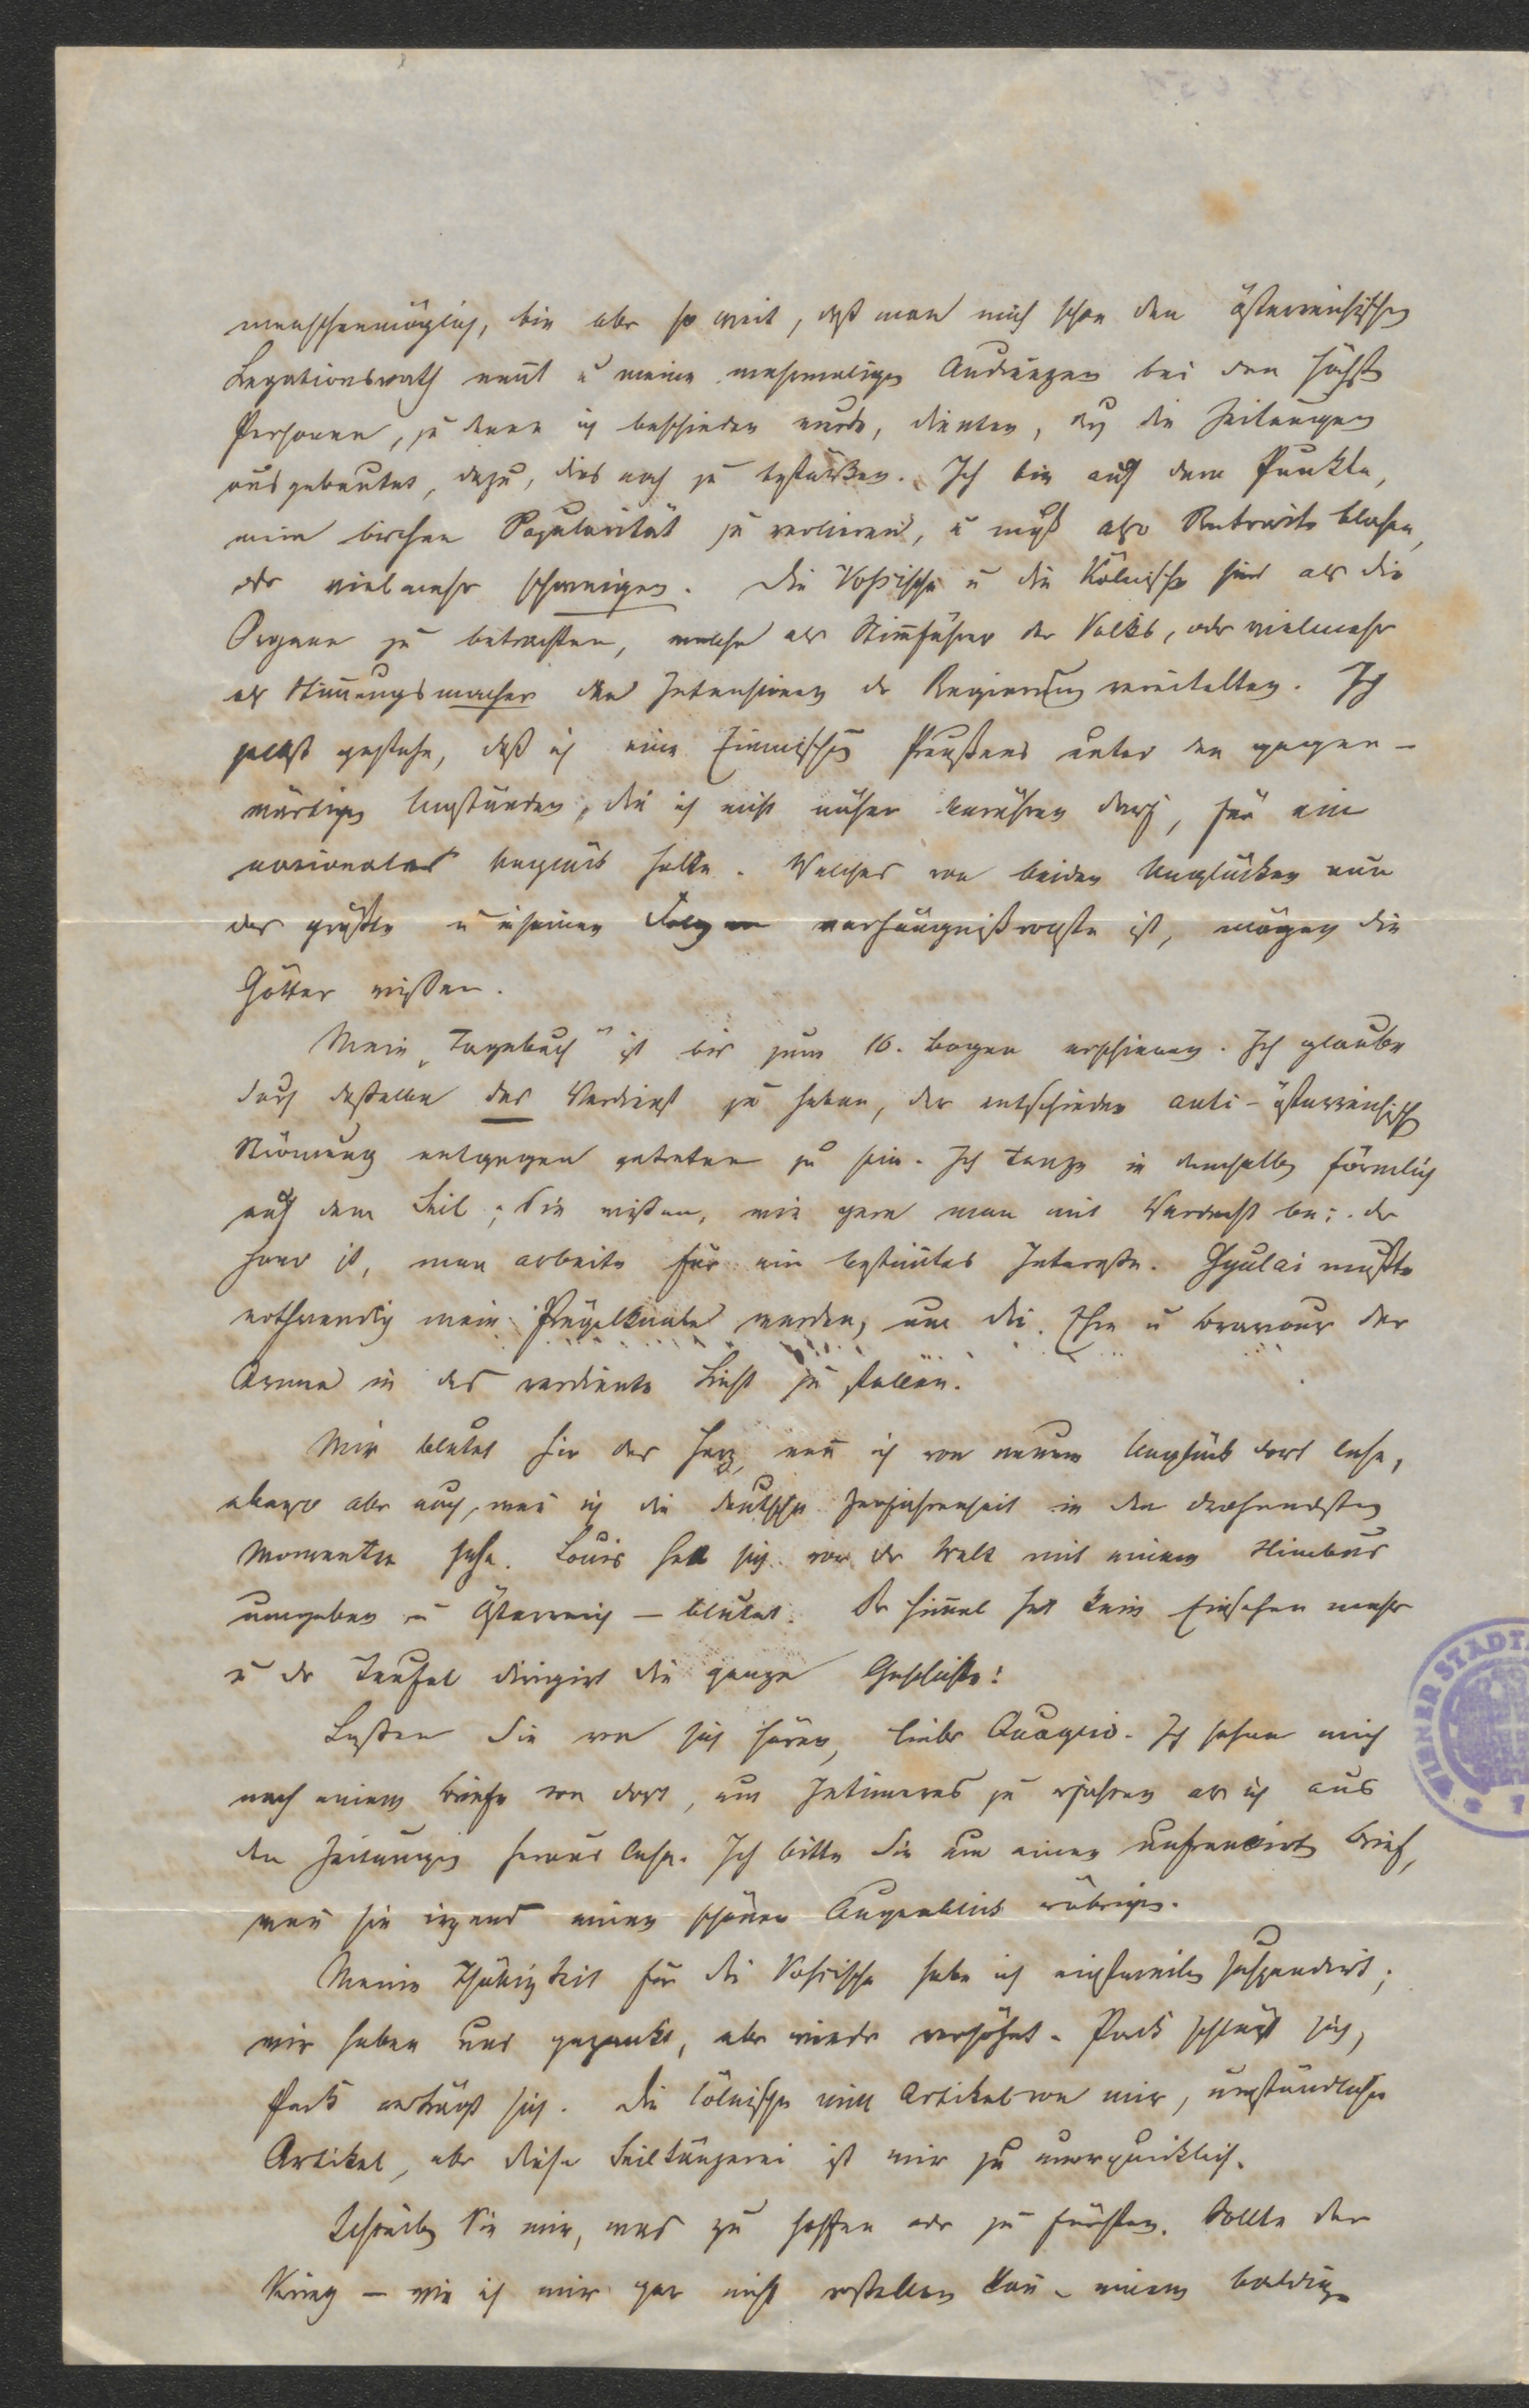 menschenmöglich, bin aber so weit, daß man mich schon den österreichischen
Legationsrath nent u meine mehrmaligen Audienzen bei den höchsten
Personen, zu denen ich beschieden wurde, dienten, durch die Zeitungen
ausgebeutet, dazu, dies noch zu bestärken. Ich bin auf dem Punkte,
mein bischen Popularität zu verlieren, u muß also Retraite blasen,
oder vielmehr schweigen. Die Vossische u die Kölnische sind als die
Organe zu betrachten, welche als Stimführer des Volks, oder vielmehr
als Stimungsmacher den Intensionen der Regierung
selbst gestehe, daß ich eine Einmischung Preußens unter den gegen-
wärtigen Umständen, die ich nicht näher berühren darf, für ein
nationales Unglück halte. Welches von beiden Unglücken nun
das größte u in seinen Folgen verhängnißvollste ist, mögen die
Götter wissen.
Mein „Tagebuch" ist bis zum 16. Bogen erschienen. Ich glaube
durch dasselbe das Verdienst zu haben, der entschieden anti-österreichischen
Strömung entgegen getreten zu sein. Ich tanze in demselben förmlich
auf dem Seil; Sie wissen, wie gern man mit Verdacht bei der
Hand ist, man arbeite für ein bestimtes Interesse. Gyulai mußte
nothwendig mein Prügelknabe werden, um die Ehre u Bravour der
Armee in das verdiente Licht zu stellen.
Mir blutet hier das Herz, wen ich von neuem Unglück dort lese,
ebenso aber auch, wen ich die deutsche Zerfahrenheit in den drohendsten
Momenten sehe. Louis hat sich vor der Welt mit einem Nimbus
umgeben u Österreich — blutet. Der Himel hat kein Einsehen mehr
u der Teufel dirigirt die ganze Geschichte!
Lassen Sie von sich hören, lieber Quaglio. Ich sehne mich
nach einem Briefe von dort, um Intimeres zu erfahren als ich aus
den Zeitungen heraus lese. Ich bitte Sie um einen unfrankirten Brief,
wen Sie irgend einen schönen Augenblick erübrigen.
Meine Thätigkeit für die Vossische habe ich einstweilen suspendirt;
wir haben uns gezankt, aber wieder versöhnt. Pack schlägt sich,
Pack verträgt sich. Die Cölnische nimt Artikel von mir, umständliche
Artikel, aber diese Seiltänzerei ist mir zu unerquicklich.
Schreiben Sie mir, was zu hoffen oder zu fürchten. Sollte der
Krieg — wie ich mir gar nicht vorstellen kan — einem baldigen
WIENER STADT